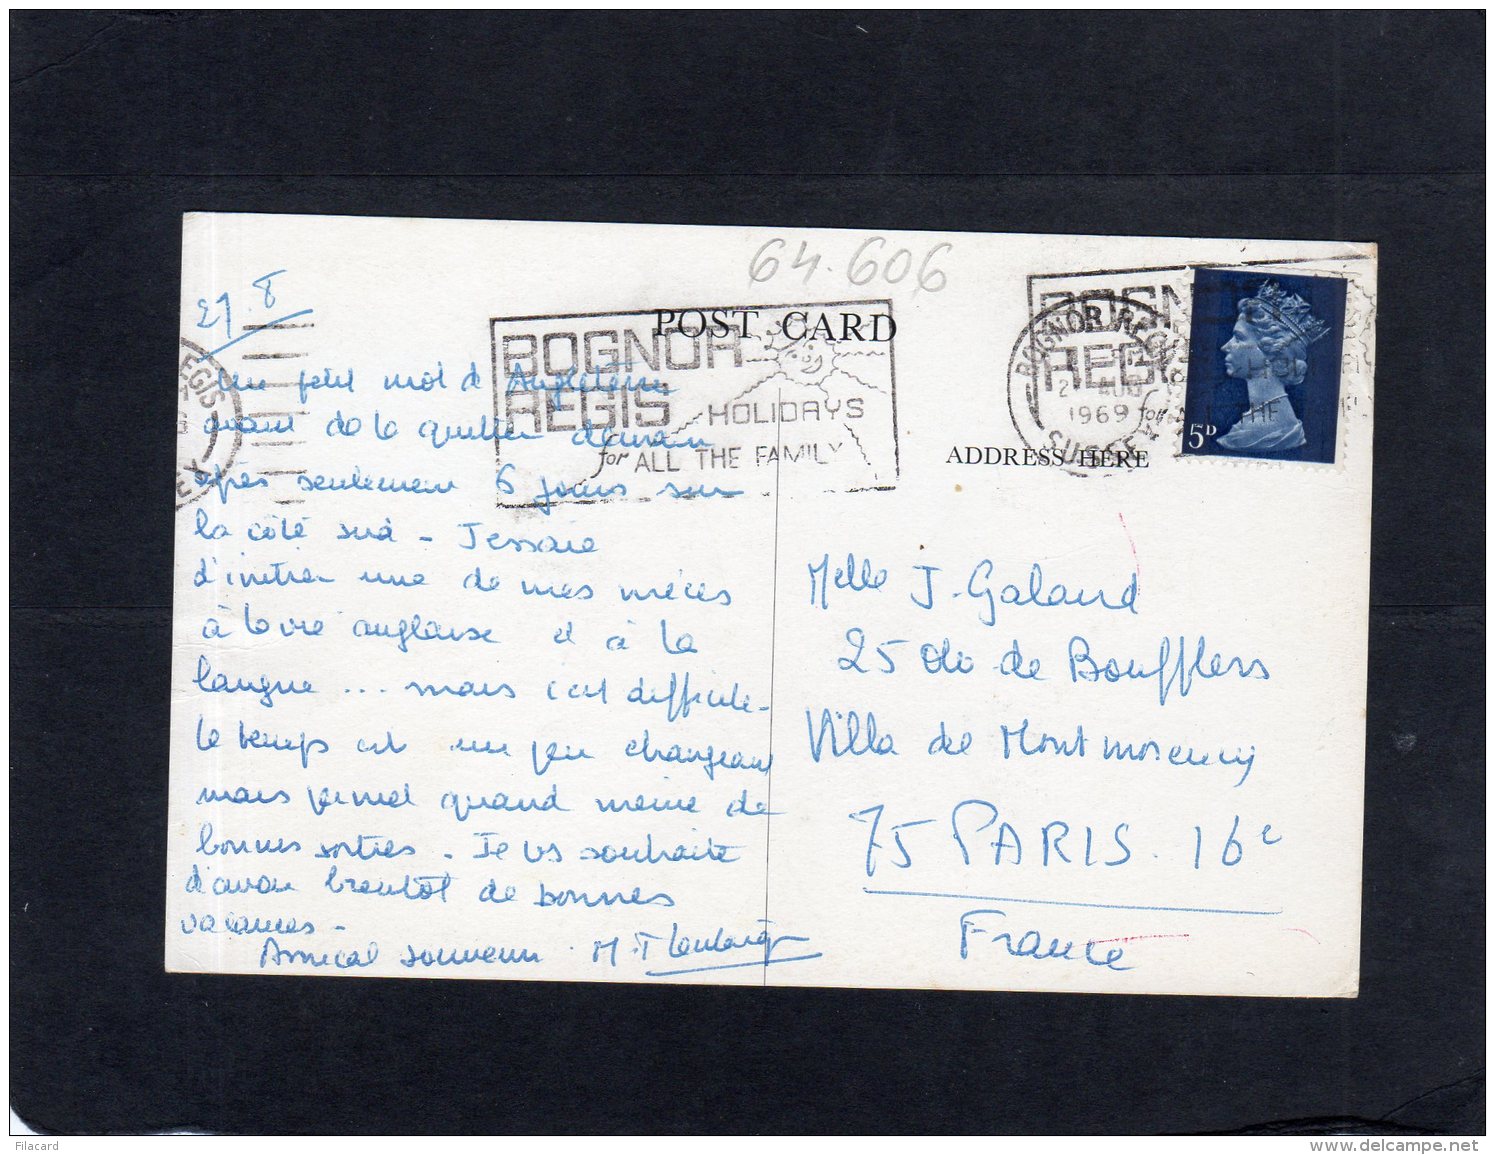 64.606
POST CARD
BOGNOR
REGIS
HOLIDAYS
for ALL THE FAMILY
BOGNOR
REGIS
BOGNOR REGIS
AUG
1969
SUSSEX
5D
ADDRESS HERE
REGIS
Un petit mot d'Angleterre
avant de la quitter demain
après seulement 6 jours sur
la côte sud - J'essaie
d'initier une de mes nièces
à la vie anglaise et à la
langue ... mais c'est difficile -
le temps est un peu changeant
mais permet quand même de
bonnes sorties - Je vs souhaite
d'avoir bientôt de bonnes
vacances -
Amical souvenir. M.T
Melle J. Galand
25 de Boufflers
Villa de Montmorency
75 PARIS. 16e
France
Filacard
www.delcampe.net